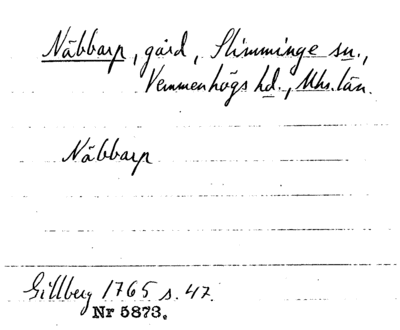 Näbbarp, gård, Slimminge sn.,
Vemmenhögs hd., Mhs. län.
Näbbarp
Gillberg 1765 s. 47.
Nr 5873.